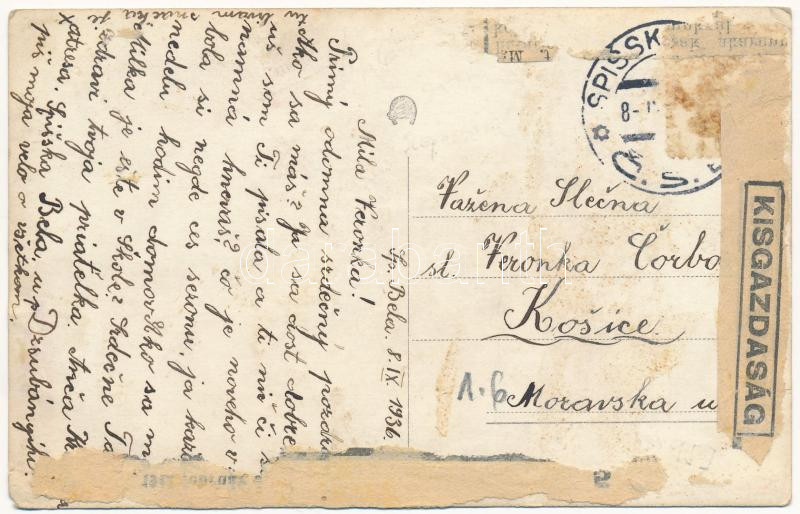 Sp. Bela. 8. IX. 1936.
Milá Veronka!
Prímy odomna srdečný pozdra
Ako sa máš? Ja sa dosť dobre
už som Ti písala a ti nič či s
nemná hneváš? čo je noveho v
bola si negde ces sezonu, ja každ
nedelu hodim domov. Ako sa m
Milka je ešte v Škole? Srdečne Ťa
zdraví tvoja priatelka. Anča
Spišska Bela, u p. Dzubányiho.
píš moja velo o všetkom.
SPISSK
8-
Č. S.
Vážena Slečna
sl. Veronka Čorba
Košice.
Moravska u
1.6
KISGAZDASÁG